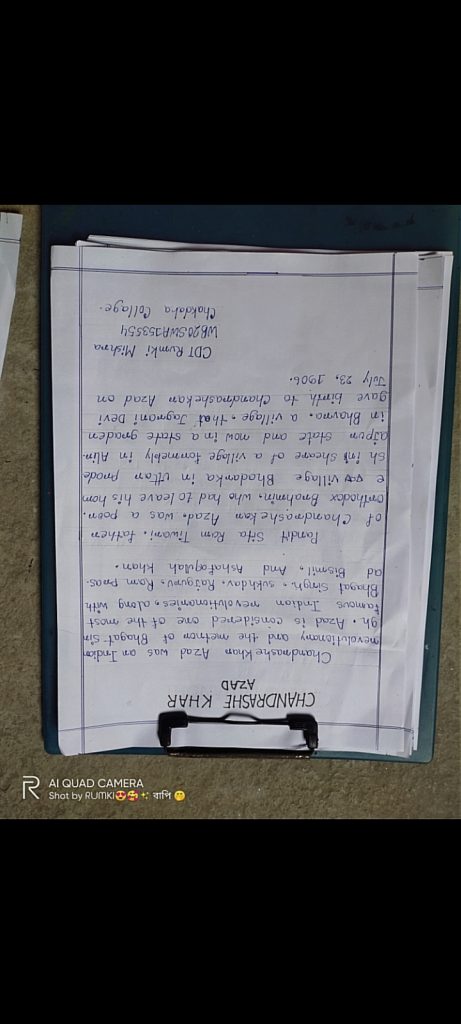 CHANDRASHE KHAR
AZAD
Chandrashekhar Azad was an Indian
revolutionary and the metron of Bhagat sin
gh. Azad is considered one of the most
famous Indian revolutionories, along with
Bhagat Singh, sukhdav, Rajguru, Ram. Pras.
ad Bismil, And Ashfaqulah khan.
Pandit Sita Ram Tiwari, father
of Chandrashe kar Azad, was a poor.
orthodox Bramhin, who had to leave his hom
e village Bhadarka in Uttar prode
sh in sheare of a village in formenly Alir-
ajpur State and now in a state graden
in Bhavra, a village, that Jagrani Devi
gave birth to Chandrashekar Azad on
July, 23, 1906.
CDT Rumki Mishra
WB20SWA153554
Chakdaha Collage.
AI QUAD CAMERA
Shot by RUMKI😍🥰✨ বাপি 🤭